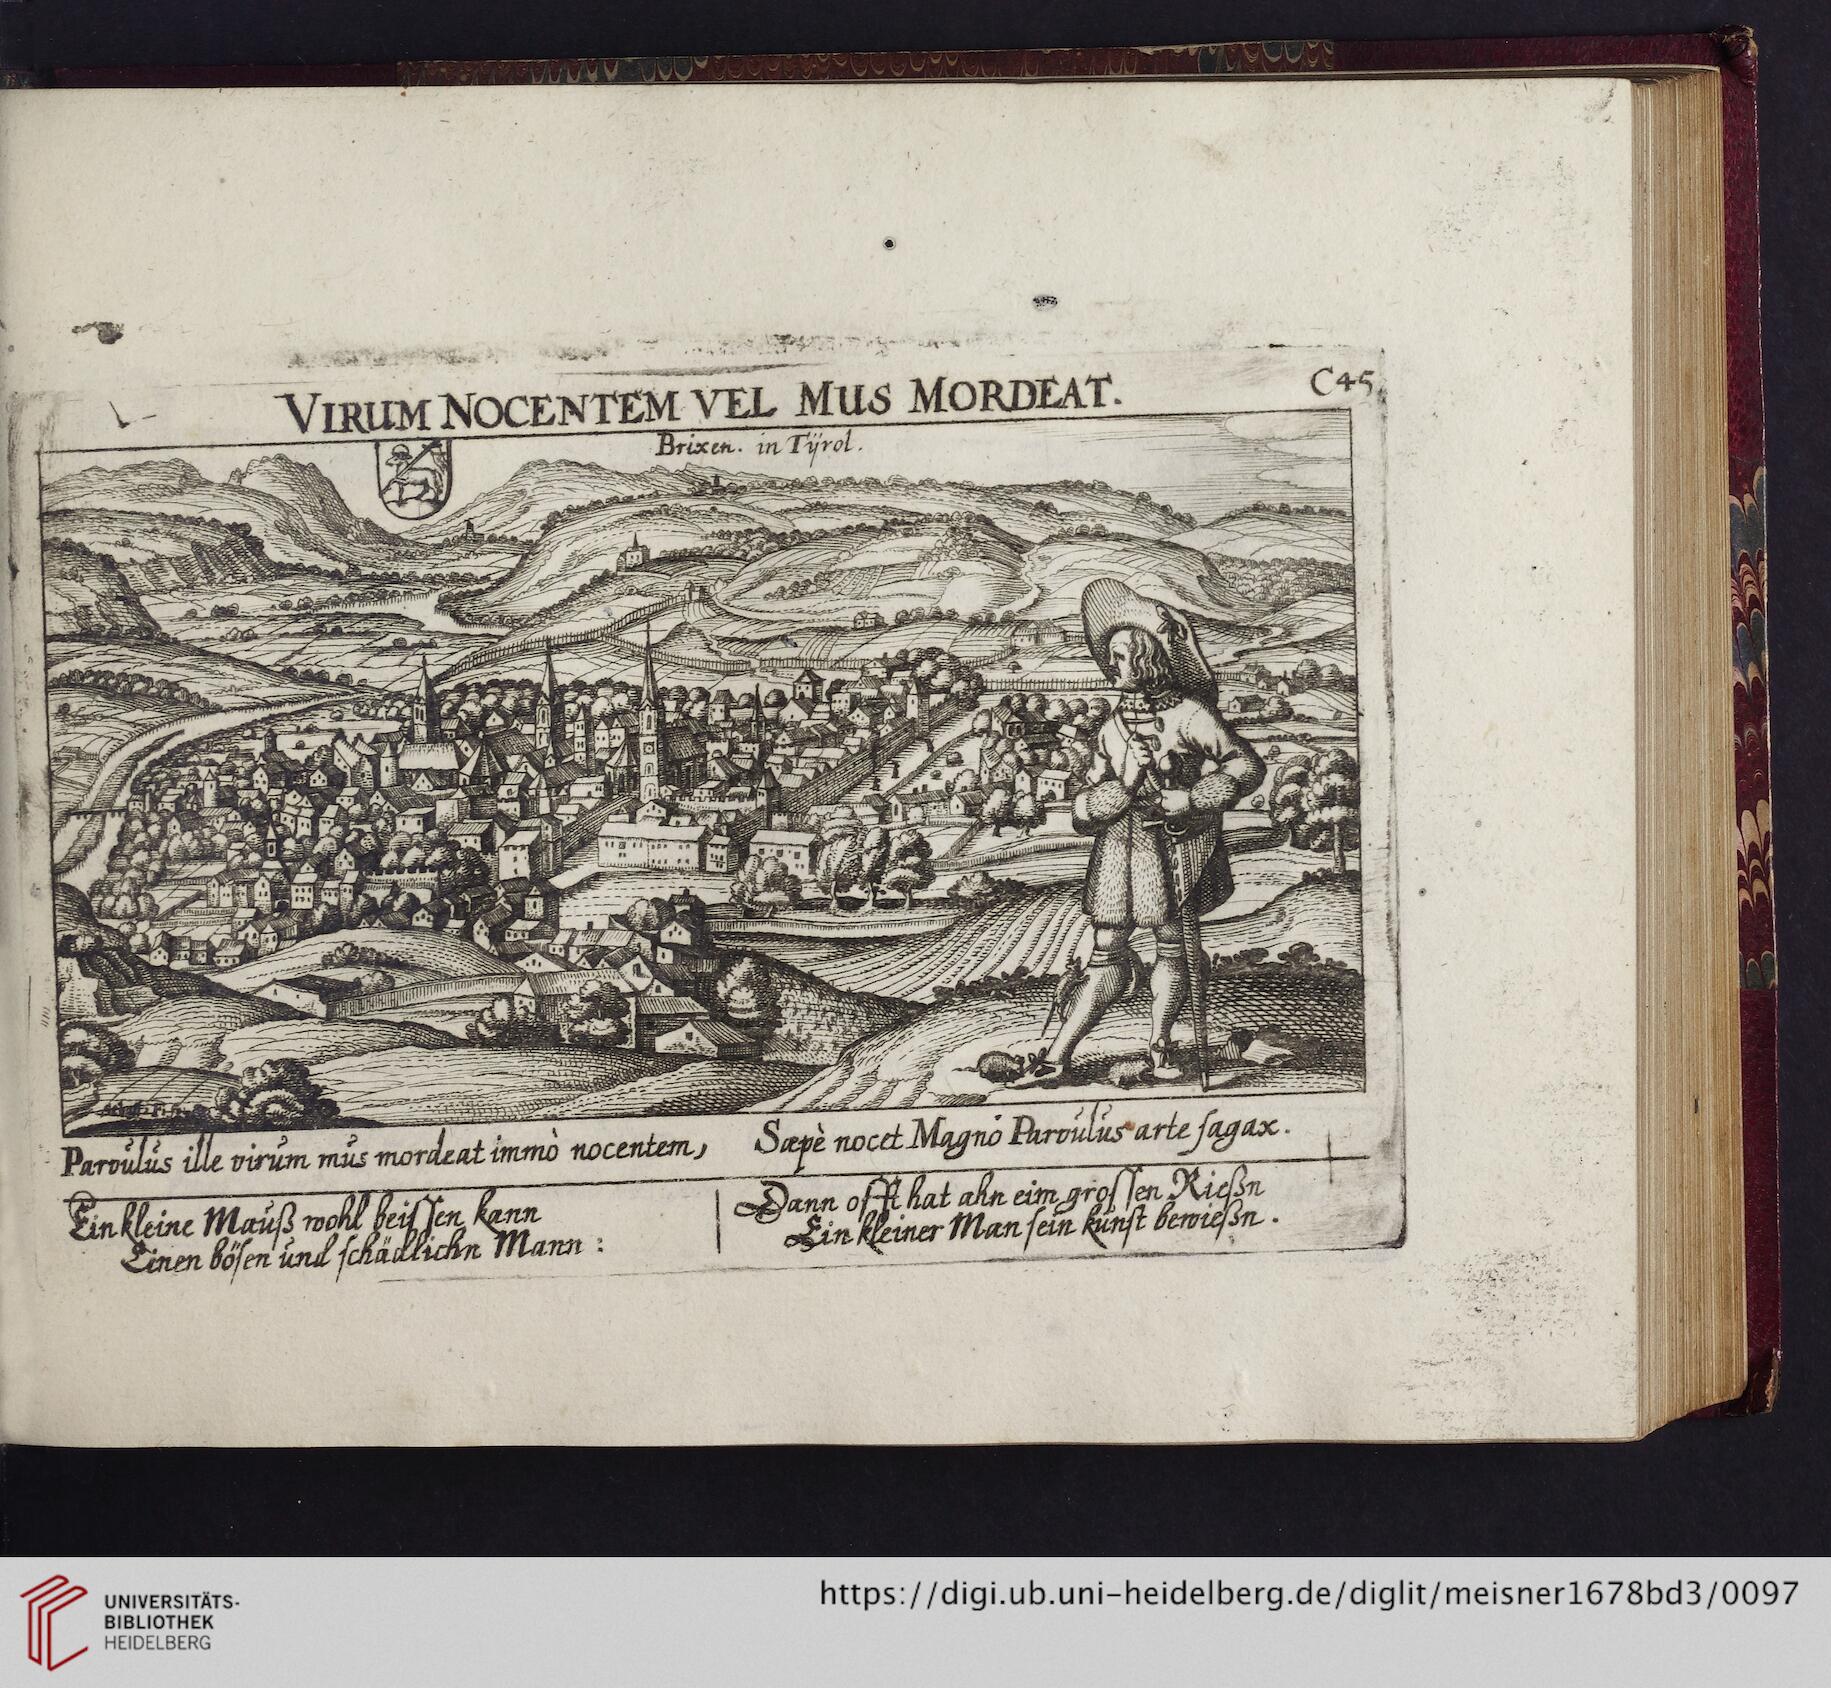 VIRUM NOCENTEM VEL MUS MORDEAT.
C45
Brixen. in Tÿrol.
Parvulus ille virum mus mordeat immò nocentem,
Sæpè nocet Magno Parvulus arte ſagax.
Ein kleine Mauß wohl beiſſen kann
Einen böſen und ſchädlichn Mann :
Dann offt hat ahn eim groſſen Rießn
Ein kleiner Man ſein kunſt bewießn.
UNIVERSITÄTS-
BIBLIOTHEK
HEIDELBERG
https://digi.ub.uni-heidelberg.de/diglit/meisner1678bd3/0097